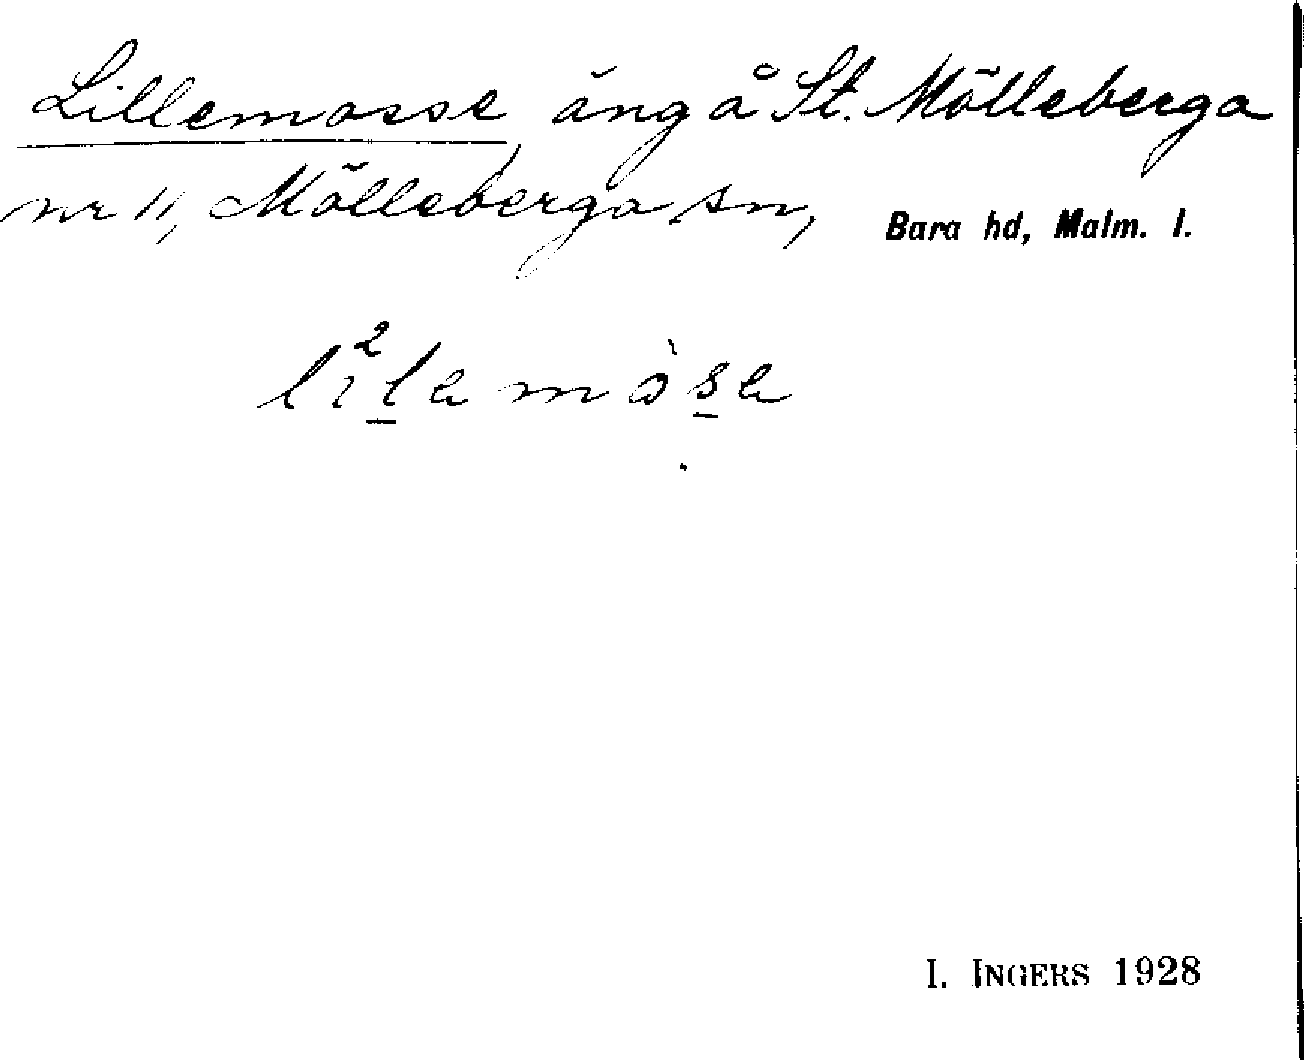 Lillemosse, äng å St. Mölleberga
nr 11, Mölleberga sn, Bara hd, Malm. l.
li²lamòsa
I. INGERS 1928